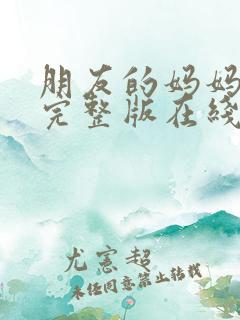 朋友的妈妈
完整版在线
尤宪超
未经同意禁止转载